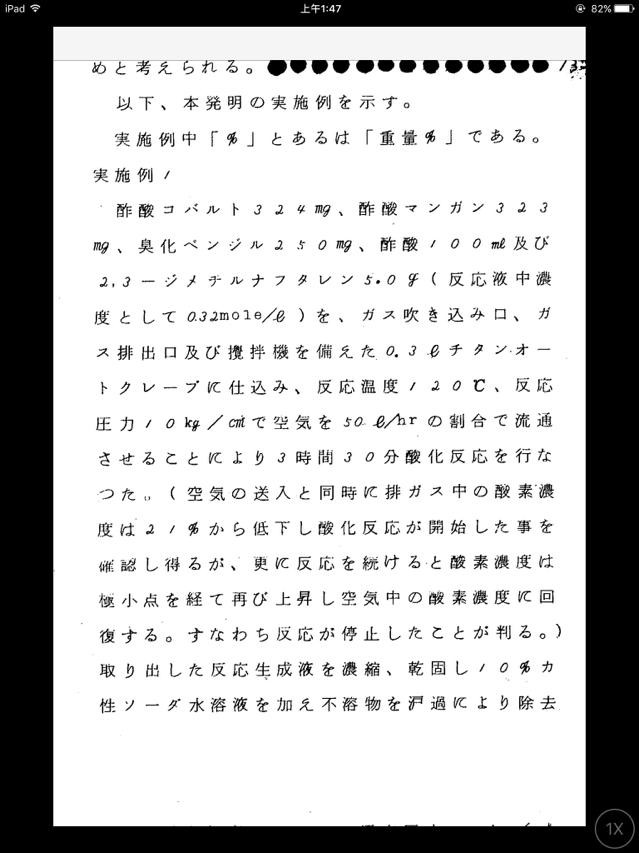 iPad 上午1:47 82%
めと考えられる。
以下、本発明の実施例を示す。
実施例中「%」とあるは「重量%」である。
実施例1
酢酸コバルト324mg、酢酸マンガン323
mg、臭化ベンジル250mg、酢酸100ml及び
2,3ージメチルナフタレン5.0g(反応液中濃
度として0.32mole/ℓ)を、ガス吹き込み口、ガ
ス排出口及び攪拌機を備えた0.3ℓチタンオー
トクレーブに仕込み、反応温度120℃、反応
圧力10kg/cm²で空気を50ℓ/hrの割合で流通
させることにより3時間30分酸化反応を行な
つた。(空気の送入と同時に排ガス中の酸素濃
度は21%から低下し酸化反応が開始した事を
確認し得るが、更に反応を続けると酸素濃度は
極小点を経て再び上昇し空気中の酸素濃度に回
復する。すなわち反応が停止したことが判る。)
取り出した反応生成液を濃縮、乾固し10%カ
性ソーダ水溶液を加え不溶物を沪過により除去
1X